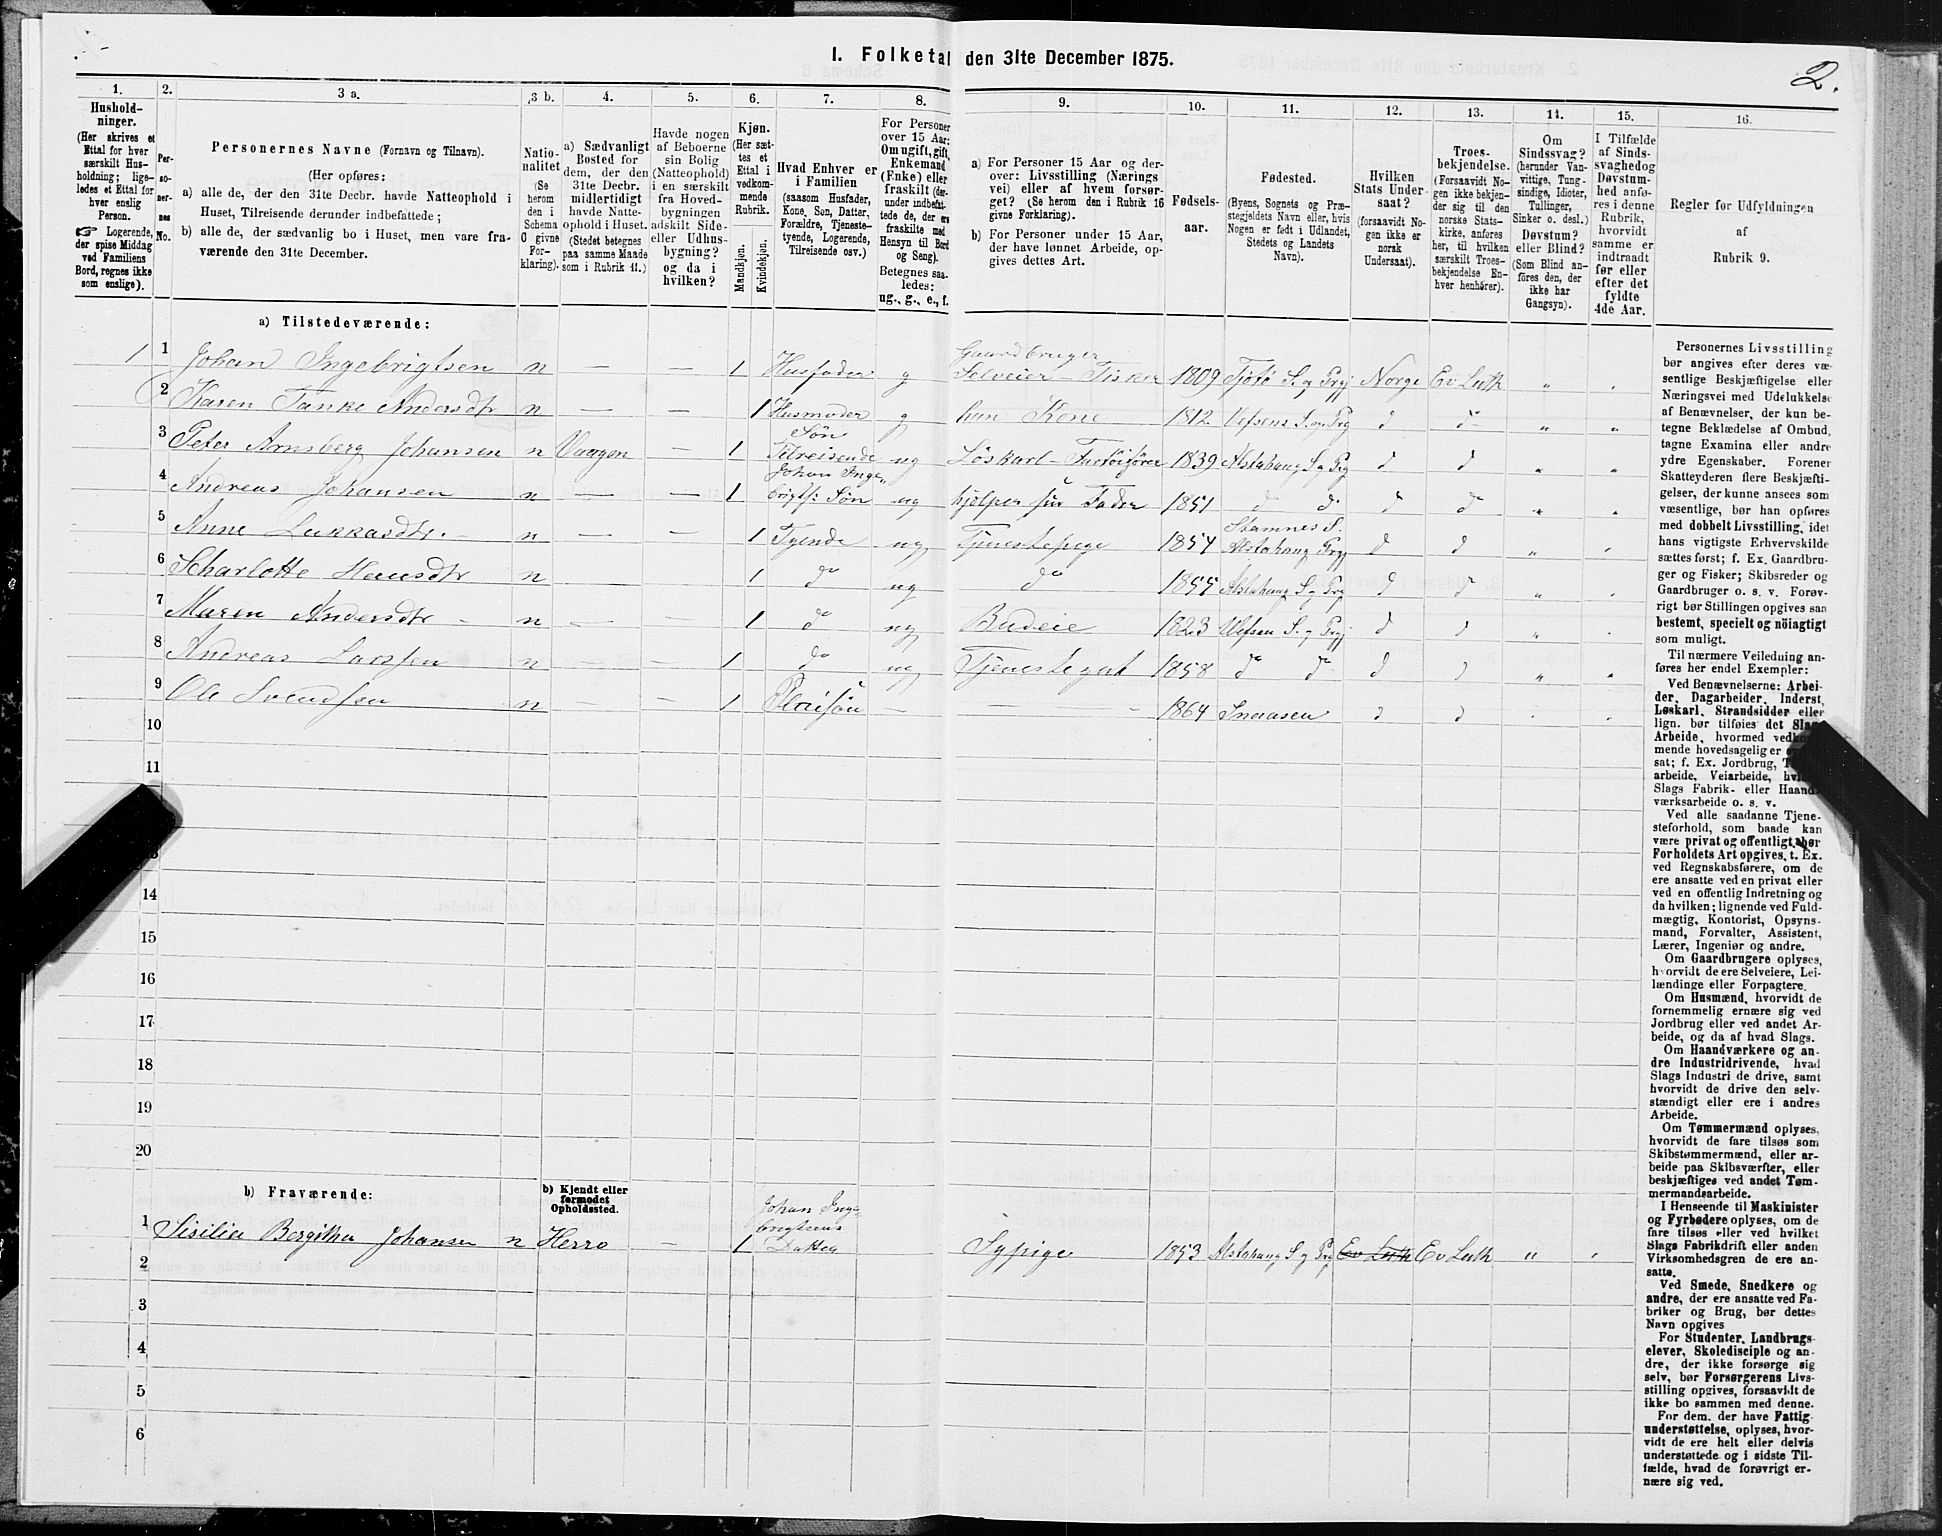 I. Folketal den 31te December 1875.
2.
1.
Hushold-
ninger.
(Her skrives et
Ettal for hver
særskilt Hus-
holdning; lige-
ledes et Ettal for
hver enslig
Person.
☞ Logerende,
der spise Middag
ved Familiens
Bord, regnes ikke
som enslige).
2.
Per-
so-
ner-
nes
No.
3 a.
Personernes Navne (Fornavn og Tilnavn).
(Her opføres:
a) alle de, der den 31te Decbr. havde Natteophold i
Huset, Tilreisende derunder indbefattede;
b) alle de, der sædvanlig bo i Huset, men vare fra-
værende den 31te December.
3 b.
Natio-
nalitet
(Se
herom
den i
Schema
O givne
For-
klaring).
4.
a) Sædvanligt
Bosted for
dem, der den
31te Decbr.
midlertidigt
havde Natte-
ophold i Huset.
(Stedet betegnes
paa samme Maade
som i Rubrik 11.)
5.
Havde nogen
af Beboerne
sin Bolig
(Natteophold)
i en særskilt
fra Hoved-
bygningen
adskilt Side-
eller Udhus-
bygning?
og da i
hvilken?
6.
Kjøn.
(Her sæt-
tes et
Ettal i
vedkom-
mende
Rubrik.
Mandkjøn.
Kvindekjøn.
7.
Hvad Enhver er
i Familien
(saasom Husfader,
Kone, Søn, Datter,
Forældre, Tjeneste-
tyende, Logerende,
Tilreisende osv.)
8.
For Personer
over 15 Aar:
Om ugift, gift,
Enkemand
(Enke) eller
fraskilt (der-
under indbefat-
tede de, der ere
fraskilte med
Hensyn til Bord
og Seng).
Betegnes saa-
ledes:
ug., g., e., f.
9.
a) For Personer 15 Aar og der-
over: Livsstilling (Nærings
vei) eller af hvem forsør-
get? (Se herom den i Rubrik 16
givne Forklaring).
b) For Personer under 15 Aar,
der have lønnet Arbeide, op-
gives dettes Art.
10.
Fødsels-
aar.
11.
Fødested.
(Byens, Sognets og Præ-
stegjeldets Navn eller, hvis
Nogen er født i Udlandet,
Stedets og Landets
Navn).
12.
Hvilken
Stats Under-
saat?
(forsaavidt No-
gen ikke er
norsk
Undersaat).
13.
Troes-
bekjendelse.
(Forsaavidt No-
gen ikke bekjen-
der sig til den
norske Stats-
kirke, anføres
her, til hvilken
særskilt Troes-
bekjendelse En-
hver henhører).
14.
Om
Sindssvag?
(herunder Van-
vittige, Tung-
sindige, Idioter,
Tullinger,
Sinker o. desl.)
Døvstum?
eller Blind?
(Som Blind an-
føres den, der
ikke har
Gangsyn).
15.
I Tilfælde
af Sinds-
svaghed og
Døvstum-
hed anfø-
res i denne
Rubrik,
hvorvidt
samme er
indtraadt
før eller
efter det
fyldte
4de Aar.
16.
Regler for Udfyldningen
af
Rubrik 9.
a) Tilstedeværende:
Gaardbruger
1 1 Johan Ingebrigtsen n — — 1 Husfader g Selveier - Fisker 1809 Tjötö S. og Prgj Norge Ev Luth „ „
2 Karen Tanke Andersdtr n — — 1 Husmoder g hans Kone 1812 Vefsens S. og Prg d d „ „
Søn
3 Peter Arnsberg Johansen n Vaagen — 1 Tilreisende ug Löskarl - Fartöiförer 1839 Alstahaug S og Prg d d „ „
Johan Inge„
4 Andreas Johansen n — — 1 brigts: Søn ug hjelper sin Fader 1851 do do d d „ „
Stamnes S.
5 Anne Lukkasdtr. n — — 1 Tyende ug Tjenestepige 1854 Alstahaug Prgj d d „ „
6 Scharlotte Hansdtr n — — 1 do ug do 1855 Alstahaug S og Prg d d „ „
7 Maren Andersdtr n — — 1 do ug Budeie 1823 Vefsen S. og Prgj d d „ „
8 Andreas Larssen n — — 1 do ug Tjenestegut 1858 do do d d „ „
9 Ole Svendsen n — 1 Pleisön — — 1864 Snaasen d d „ „
10
11
13
14
15
16
17
18
19
20
b) Fraværende:
b) Kjendt eller
formodet
Opholdssted.
Johan Inge-
brigtsens
1 Sisilie Bergitha Johansen n Herrø — 1 Datter Sypige 1853 Alstahaug S og Prg Ev Luth Ev Luth „ „
2
3
4
5
6
Personernes Livsstilling
bør angives efter deres væ-
sentlige Beskjæftigelse eller
Næringsvei med Udelukkelse
af Benævnelser, der kun be-
tegne Beklædelse af Ombud,
tagne Examina eller andre
ydre Egenskaber. Forener
Skatteyderen flere Beskjæfti-
gelser, der kunne ansees som
væsentlige, bør han opføres
med dobbelt Livsstilling, idet
hans vigtigste Erhvervskilde
sættes først; f. Ex. Gaardbru-
ger og Fisker; Skibsreder og
Gaardbruger o. s. v. Forøv-
rigt bør Stillingen opgives saa
bestemt, specielt og nöiagtigt
som muligt.
Til nærmere Veiledning an-
føres her endel Exempler:
Ved Benævnelserne: Arbei-
der, Dagarbeider, Inderst,
Løskarl, Strandsidder eller
lign. bør tilføies det Slags
Arbeide, hvormed vedkom-
mende hovedsagelig er
sat; f. Ex. Jordbrug, T
arbeide, Veiarbeide, hvil
Slags Fabrik- eller Haand-
værksarbeide o. s. v.
Ved alle saadanne Tjene-
steforhold, som baade kan
være privat og offentligt, bør
Forholdets Art opgives, t. Ex.
ved Regnskabsførere, om de
ere ansatte ved en privat eller
ved en offentlig Indretning og
da hvilken; lignende ved Fuld-
mægtig, Kontorist, Opsyns-
mand, Forvalter, Assistent,
Lærer, Ingeniør og andre.
Om Gaardbrugere oplyses,
hvorvidt de ere Selveiere, Lei-
lændinge eller Forpagtere.
Om Husmænd, hvorvidt de
fornemmelig ernære sig ved
Jordbrug eller ved andet Ar-
beide, og da af hvad Slags.
Om Haandværkere og an-
dre Industridrivende, hvad
Slags Industri de drive, samt
hvorvidt de drive den selv-
stændigt eller ere i andres
Arbeide.
Om Tømmermænd oplyses,
hvorvidt de fare tilsøs som
Skibstømmermænd, eller ar-
beide paa Skibsværfter, eller
beskjæftiges ved andet Tøm-
mermandsarbeide.
I Henseende til Maskinister
og Fyrbødere oplyses, om de
fare tilsøs eller ved hvilket
Slags Fabrikdrift eller anden
Virksomhedsgren de ere an-
satte.
Ved Smede, Snedkere og
andre, der ere ansatte ved Fa-
briker og Brug, bør dettes
Navn opgives
For Studenter, Landbrugs-
elever, Skoledisciple og an-
dre, der ikke forsørge sig
selv, bør Forsørgerens Livs-
stilling opgives, forsaavidt de
ikke bo sammen med denne.
For dem, der have Fattig-
understøttelse, oplyses, hvor-
vidt de ere helt eller delvis
understøttede og i sidste Til-
fælde, hvad de forøvrigt er-
nære sig ved.